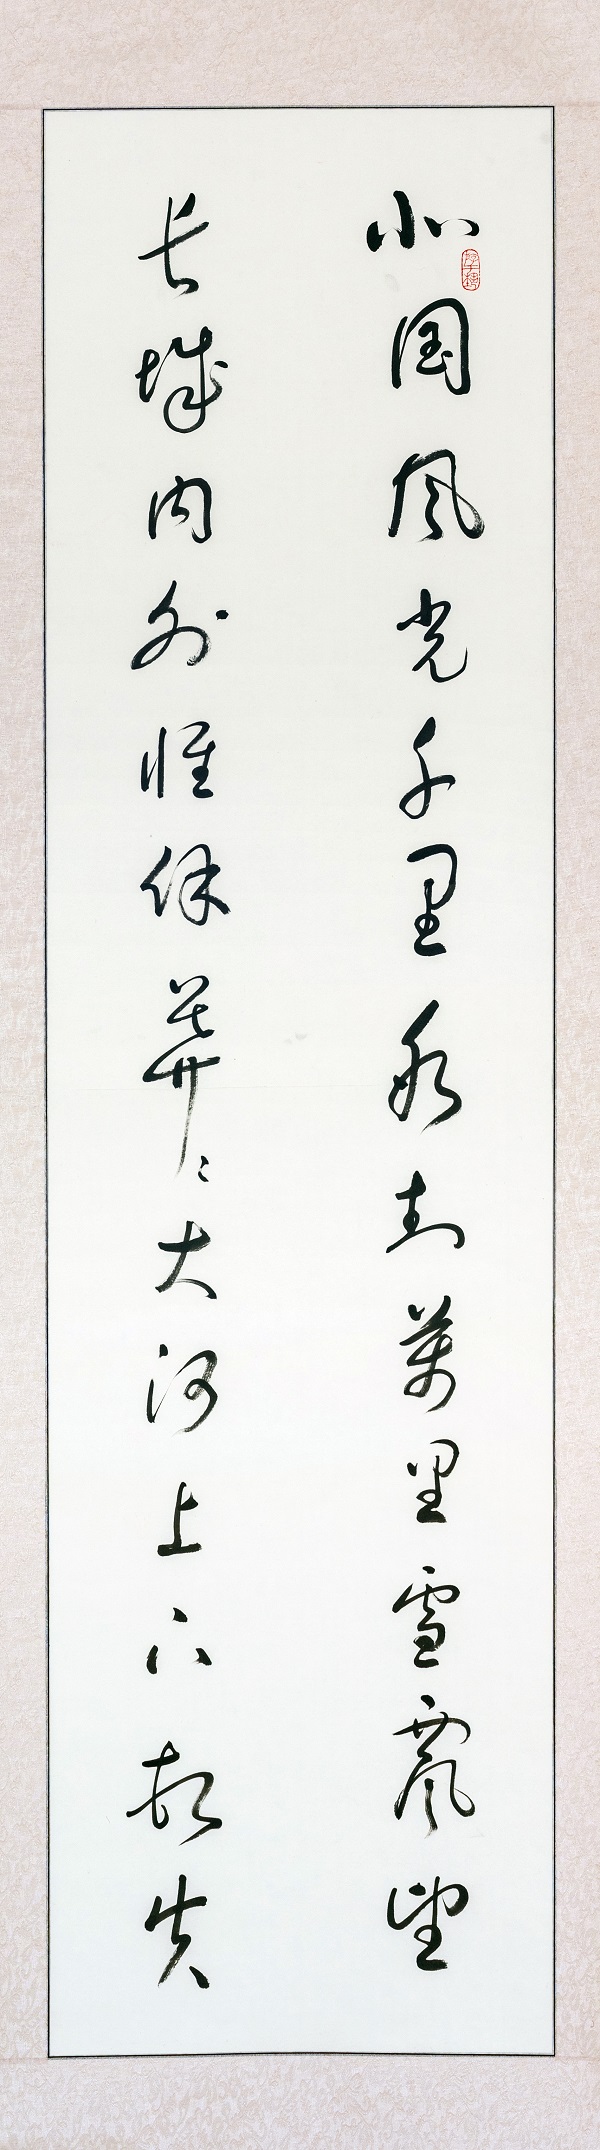 北国风光千里冰封万里雪飘望
长城内外惟余莽々大河上下顿失